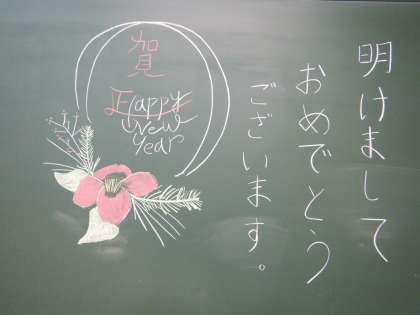 明けまして
おめでとう
ございます。
賀
正
Happy
New
Year